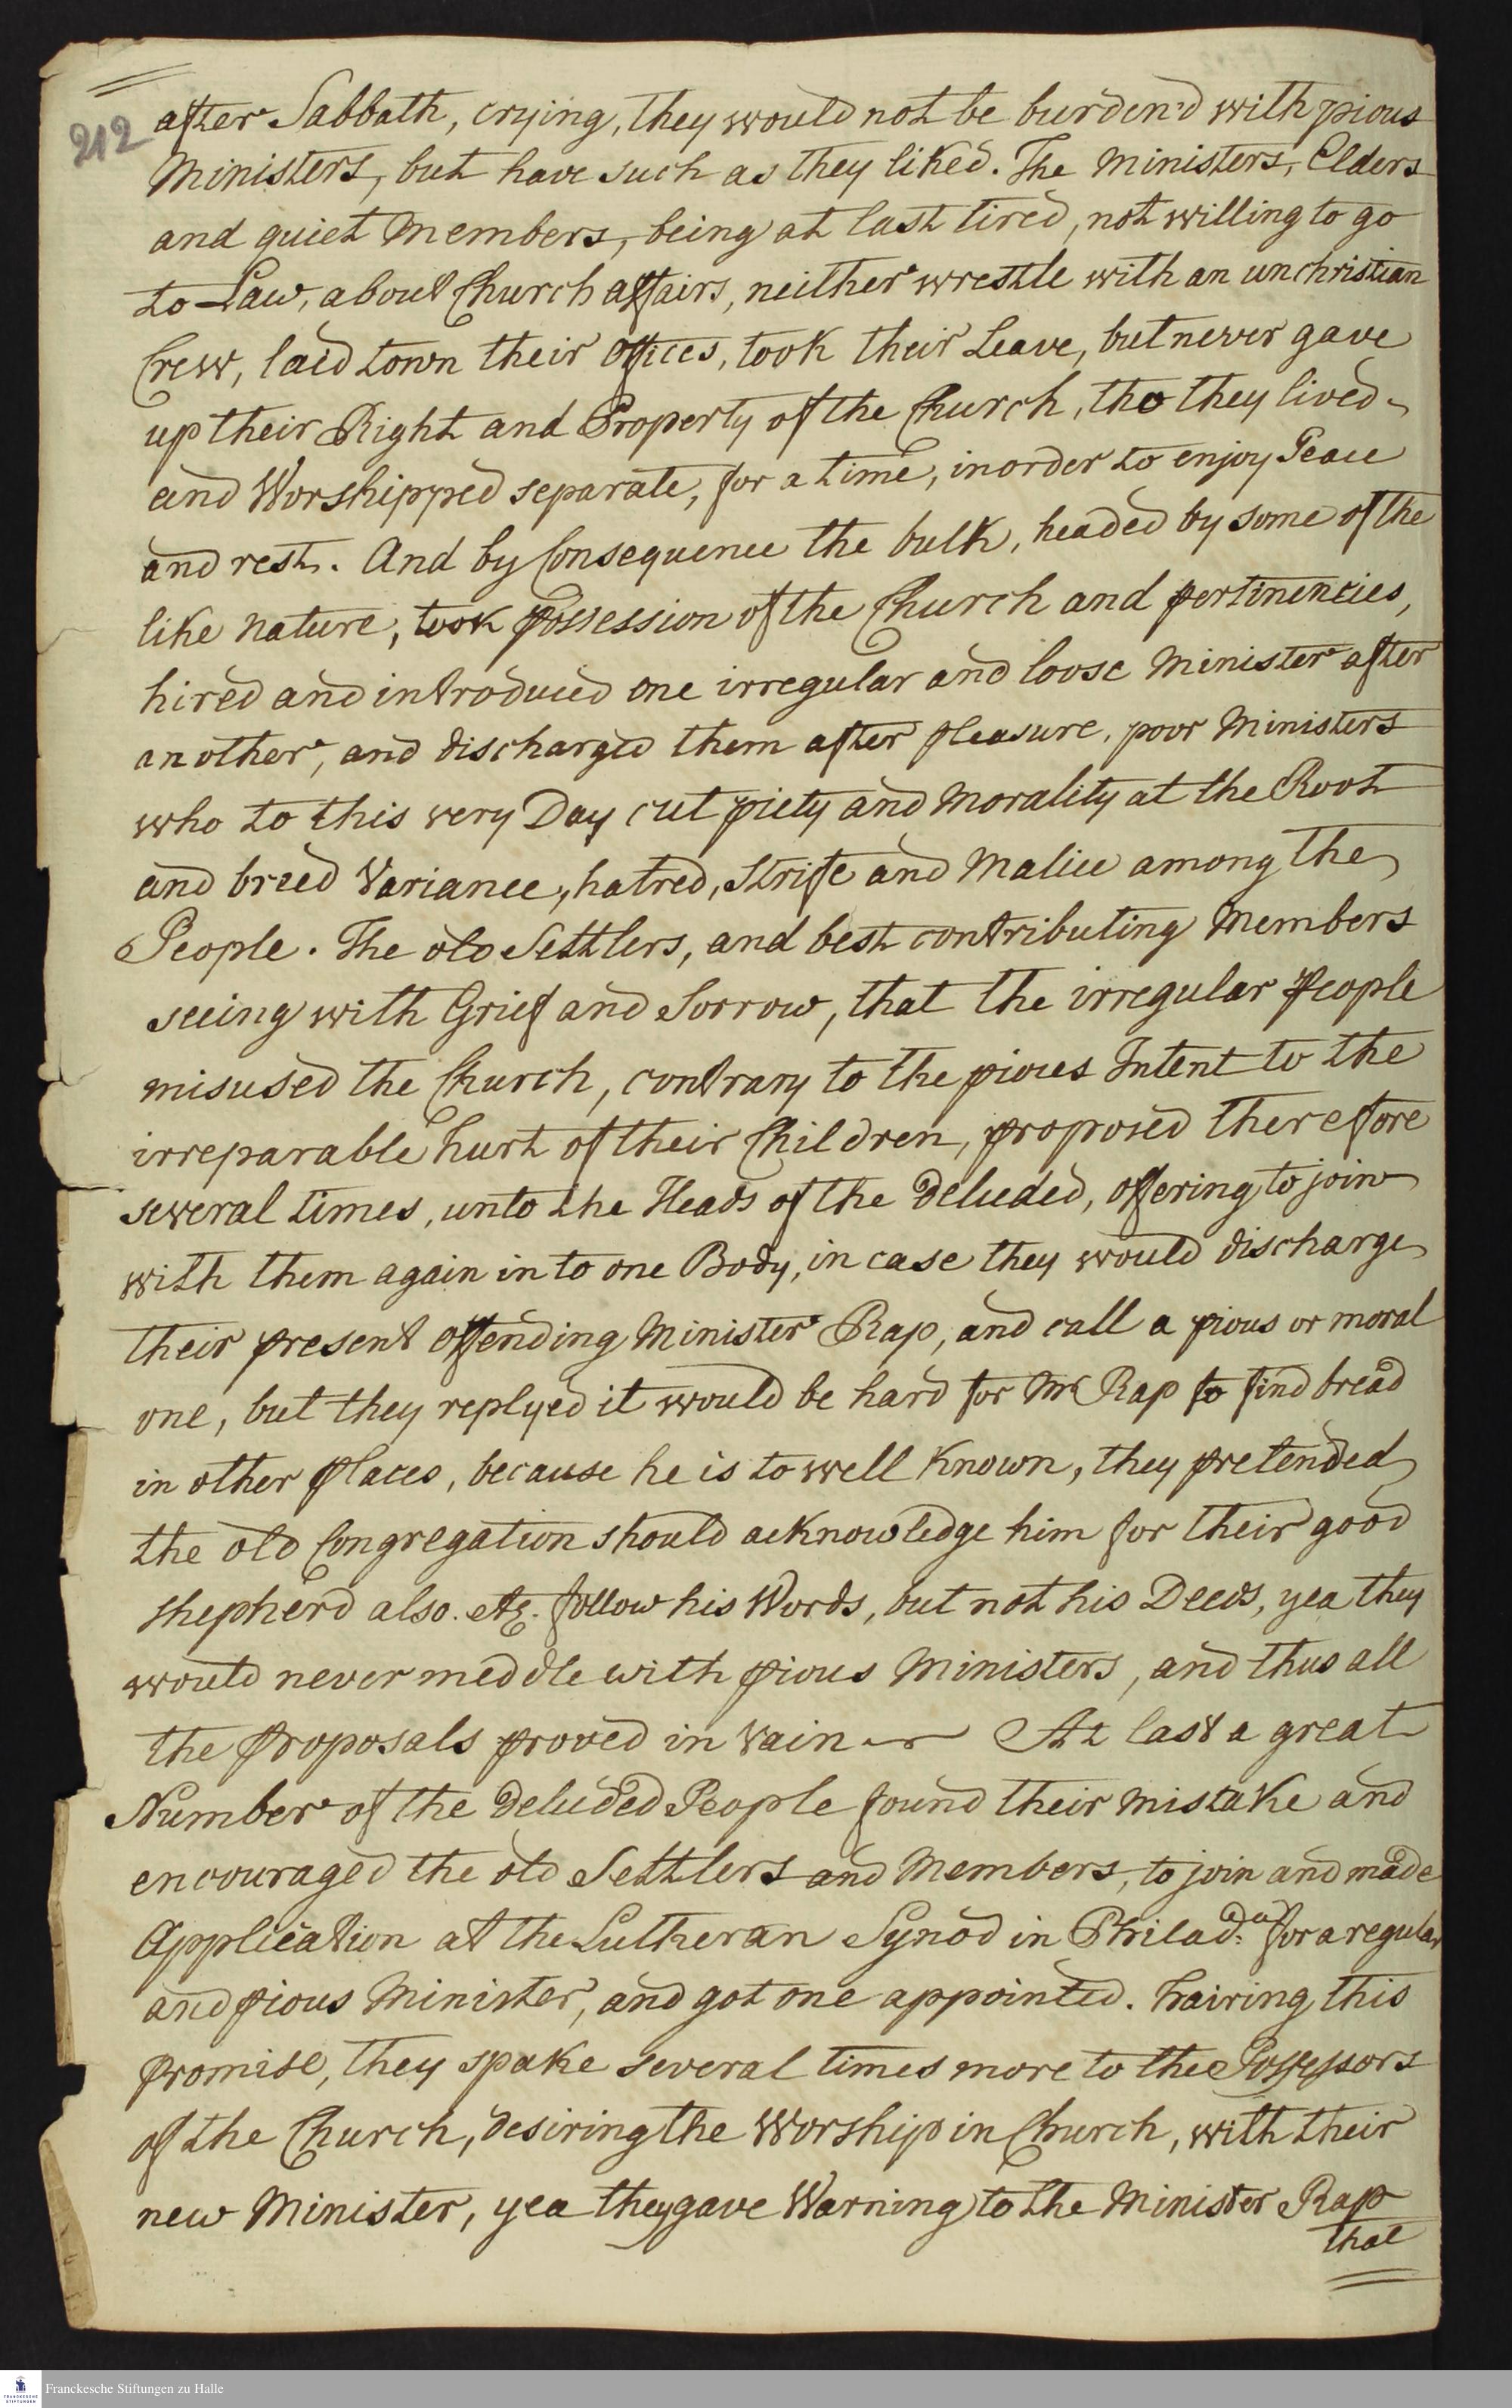 212
after Sabbath, crying, they would not be burden'd with pious
Ministers, but have such as they liked. The Ministers, Elders
and quiet Members, being at last tired, not willing to go
to Law, about Church affairs, neither wrestle with an unchristian
Crew, laid town their Offices, took their Leave, but never gave
up their Right and Property of the Church, tho they lived
and Worshipped separate, for a time, inorder to enjoy Peace
and rest. And by Consequence the bulk, headed by some of the
like nature, took possession of the Church and pertinencies,
hired and introduced one irregular and loose Minister after
another, and discharged them after pleasure, poor Ministers
who to this very Day cut piety and Morality at the Root
and breed Variance, hatred, Strife and Malice among the
People. The old Settlers, and best contributing Members
seeing with Grief and Sorrow, that the irregular People
misused the Church, contrary to the pious Intent to the
irreparable hurt of their Children, proposed therefore
several times, unto the Heads of the Deluded, offering to join
with them again in to one Body, in case they would discharge
their present offending Minister Rap, and call a pious or moral
one, but they replyed it would be hard for Mr Rap to find bread
in other places, because he is to well known, they pretended
the old Congregation should acknowledge him for their good
shepherd also. &. follow his Words, but not his Deeds, yea they
would never meddle with pious Ministers, and thus all
the proposals proved in vain At last a great
Number of the Deluded People found their mistake and
encouraged the old Settlers and Members, to join and made
Application at the Lutheran Synod in Philad:a for a regular
and pious Minister, and got one appointed. Hairing this
promise, they spake several times more to the Possessors
of the Church, desiring the Worship in Church, with their
new Minister, yea they gave Warning to the Minister Rap
that
FRANCKESCHE STIFTUNGEN
Franckesche Stiftungen zu Halle